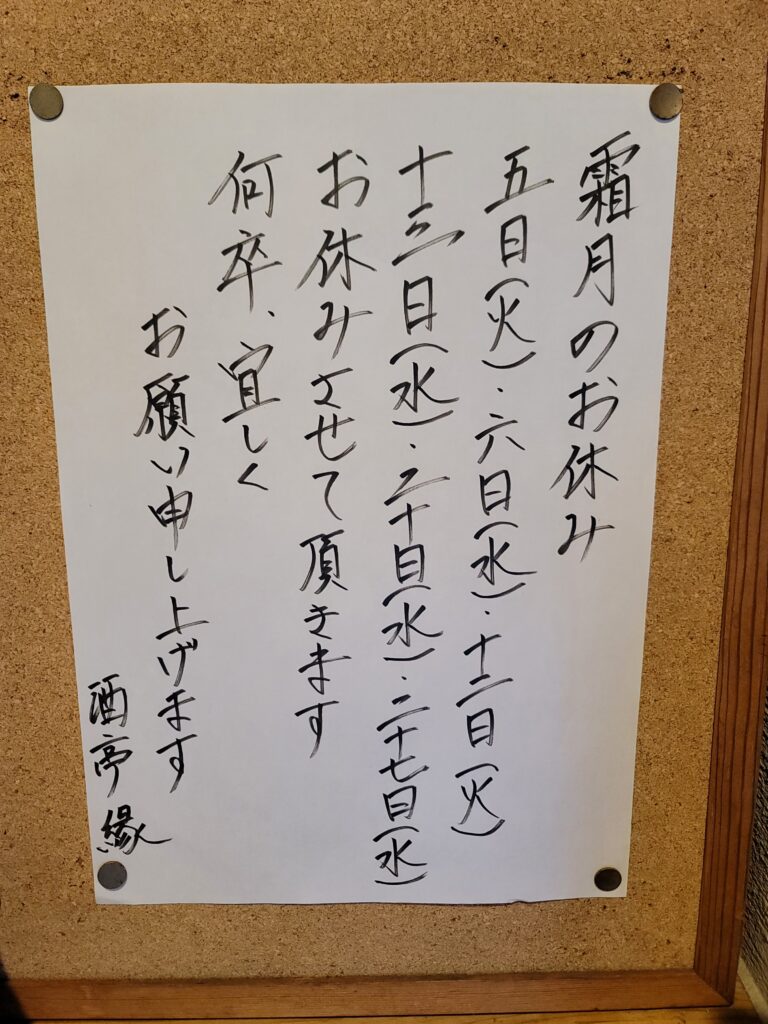 霜月のお休み
五日(火)・六日(水)・十二日(火)
十三日(水)・二十日(水)・二十七日(水)
お休みさせて頂きます
何卒、宜しく
お願い申し上げます
酒亭 縁